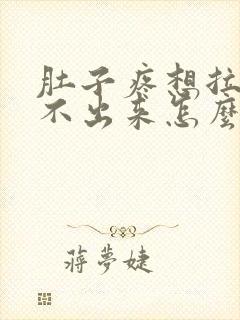 肚子疼想拉
不出来怎麼
蔣夢婕